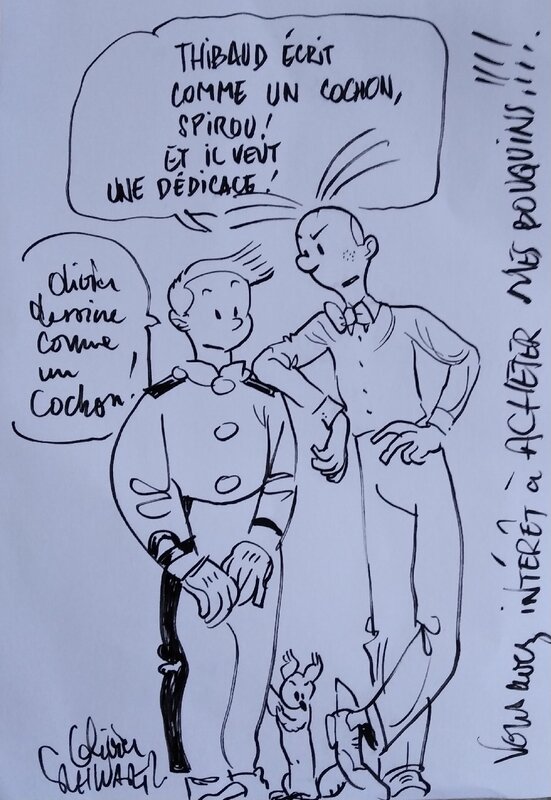 THIBAUD ÉCRIT
COMME UN COCHON,
SPIROU!
ET IL VEUT
UNE DÉDICACE!
Olivier
dessine
comme
un
Cochon!
Vous avez INTÉRÊT à ACHETER MES BOUQUINS!!!
Olivier
SCHWARTZ